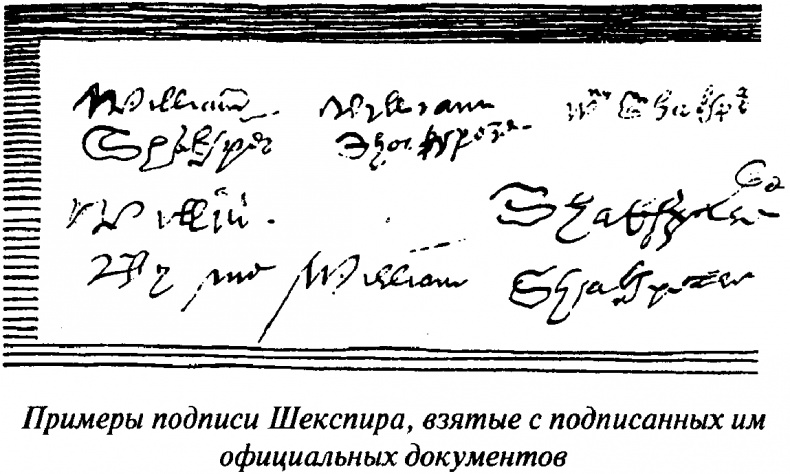 William William Wm Shakspe
Shaksper
Shakspere
By me William Shakspeare
Примеры подписи Шекспира, взятые с подписанных им
официальных документов